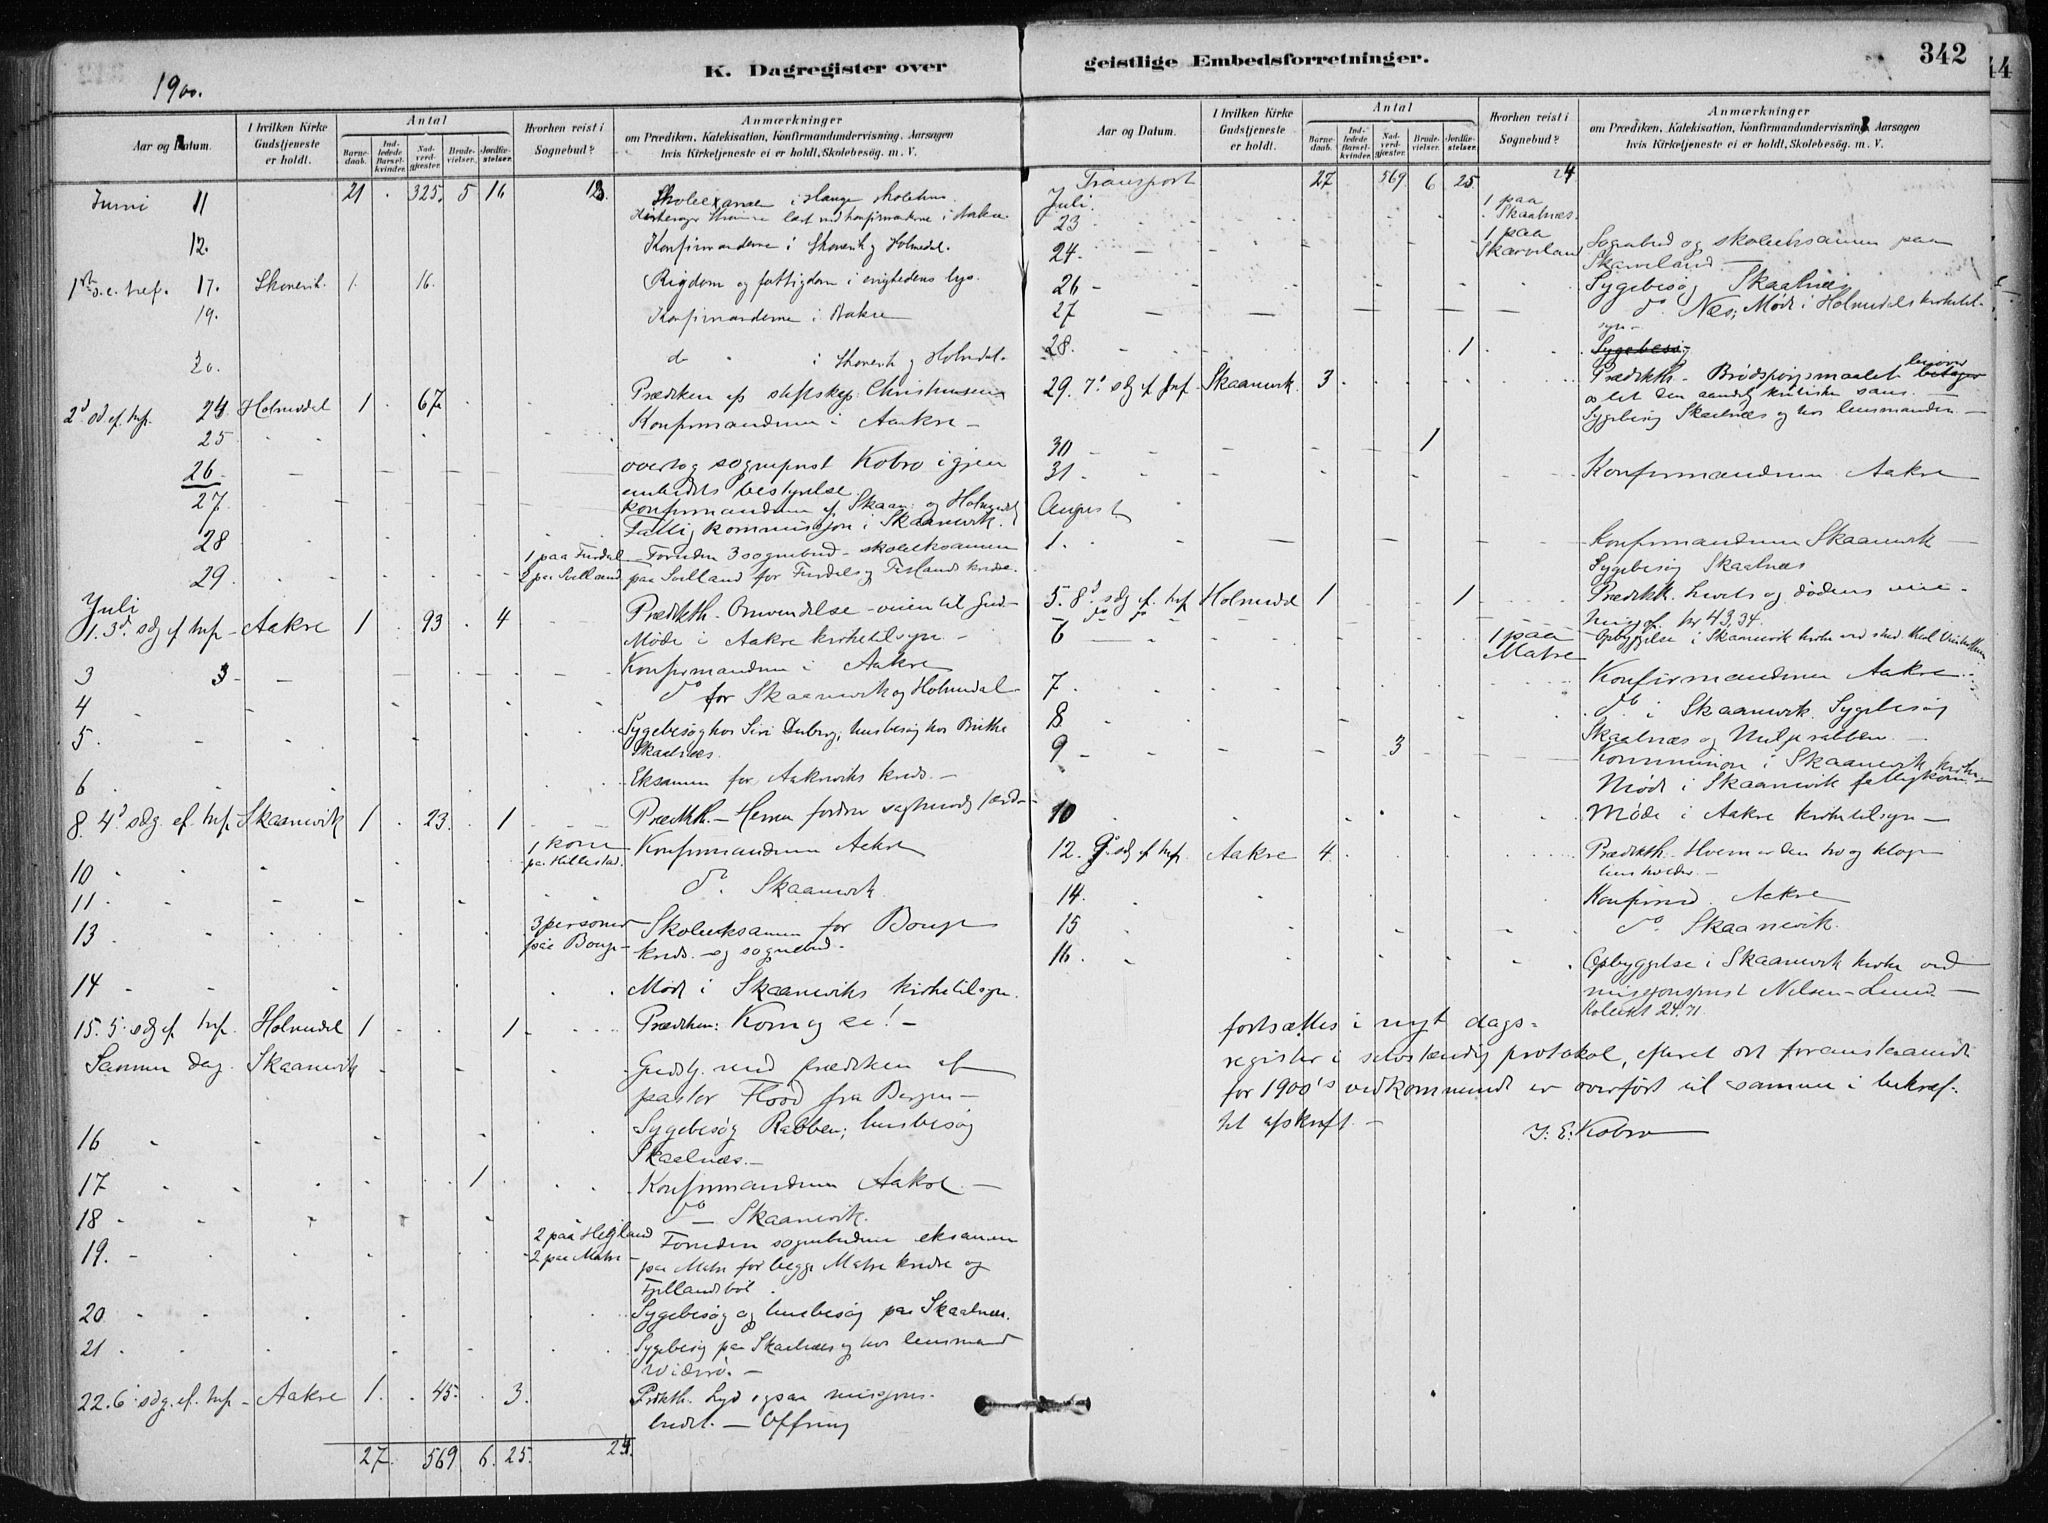 1900.
K. Dagregister over
Aar og Datum.
I hvilken Kirke Gudstjeneste er holdt.
Antal
Barnedaab. Indledede Barselkvinder. Nadverdgjester. Brudevielser. Jordfæstelser.
Hvorhen reist i Sognebud?
Anmærkninger
om Prædiken, Katekisation, Konfirmandundervisning, Aarsagen
hvis Kirketjeneste ei er holdt, Skolebesøg. m. V.
Juni 11 21 325. 5 16 Skoleexamen i Hauge skolehus.
læst med konfirmanderne i Aakre.
12. Konfirmanderne i Skonevik og Holmedal.
1ste s. e. tref. 17. Skonevik. 1. 16. Rigdom og fattigdom i evighedens lys.
19. Konfirmanderne i Aakre
20. do i Skonevik og Holmedal.
2d sd. ef. tref. 24 Holmedal 1 67 Prædiken af stiftskap. Christensen
25 Konfirmanderne i Aakre
26 overtog sogneprest Kobro igjen
embedets bestyrelse.
27 konfirmanderne af Skaan: og Holmedal
Fattigkommission i Skaanevik.
28 1 paa Furdal Foruden 3 sognebud - skoleeksamen
29. 2 paa Solland paa Solland for Furdals og kredse.
Juli
1. 3d. sdg. ef. tref. Aakre 1 93 4 Prædikth. Omvendelse - veien til Gud
Møde i Aakre kirketilsyn
3 3 Konfirmanderne i Aakre
4 do for Skaanevik og Holmedal
5. Sygebesøg hos Siri husbesøg hos Brithe
Skaalnæs.
6 Eksamen for Aakreviks kreds.
8. 4d sdg. ef. tref. Skaanevik 1 23. 1 Prædikth. - Herren fordrer
10 1 kone Konfirmanderne Aakre
11 do. Skaanevik.
13 3 personer Skoleeksamen for
kreds - og sognebud.
14 Møde i Skaaneviks kirketilsyn.
15. 5. sdg. ef. tref. Holmedal 1 1 Prædiken: Kom og se!
Samme dag. Skaanevik Gudstj. med prædiken af
pastor Flood fra Bergen
16 Sygebesøg Rabben; husbesøg
Skaalnæs.
17 1 Konfirmanderne Aakre.
18 do Skaanevik.
19. 2 paa Helgland Foruden sognebudene eksamen
2 paa Matre paa Matre for begge Matre kredse og
20 Sygebesøg og husbesøg paa Skaalnæs.
21 Sygebesøg paa Skaalnæs og hos lensmand
22. 6. sdg. ef. tref. Aakre 1. 45. 3. Prækth. Lyd ogsaa misjons-
budet. - Offring
27. 569 6. 25. 24.
geistlige Embedsforretninger.
342
Aar og Datum.
I hvilken Kirke Gudstjeneste er holdt.
Antal
Barnedaab. Indledede Barselkvinder. Nadverdgjester. Brudevielser. Jordfæstelser.
Hvorhen reist i Sognebud?
Anmærkninger
om Prædiken, Katekisation, Konfirmandundervisning, Aarsagen
hvis Kirketjeneste ei er holdt, Skolebesøg. m. V.
Transport 27 569 6 25. 24
Juli.
23 1 paa Skaalnæs.
24. 1 paa Skarveland Sognebud og skoleeksamen paa
Skarveland
26 Sygebesøg Skaalnæs
27 do. Næs; Møde i Holmedals kirketil-
syn
28. 1 Sygebesøg
29. 7d sdg. ef. tref. Skaanevik. 3 Prædikth. - Brødspørgsmaalet
og let den aandelig kritiske sans.
Sygebesøg Skaalnæs og hos lensmanden.
30 1
31. Konfirmanderne Aakre
August
1. Konfirmanderne Skaanevik
Sygebesøg Skaalnæs
5. 8d. sdg. ef. tref. Holmedal 1 1 Prædikth. Livets og dødens
6 1 paa Matre Opbyggelse i Skaanevik kirke ved
7 Konfirmanderne Aakre.
8 do i Skaanevik. Sygebesøg
Skaalnæs og
9 3 Kommunion i Skaanevik kirke.
Møde i Skaanevik fattigkom.
10 Møde i Aakre kirketilsyn
12. 9. sdg. ef. tref. Aakre 4. Prædikth. Hvem er den tro og kloge
husholder.
14. Konfirmd. Aakre
15 do. Skaanevik.
16. Opbyggelse i Skaanevik kirke ved
misjonsprest Nilsen-Lund
Kollekt 24,71
fortsættes i nyt dags-
register i selvstændig protokol, efteret det foranstaaende
for 1900's vedkommende er overført til samme i bekræf-
tet afskrift.
J. E. Kobro